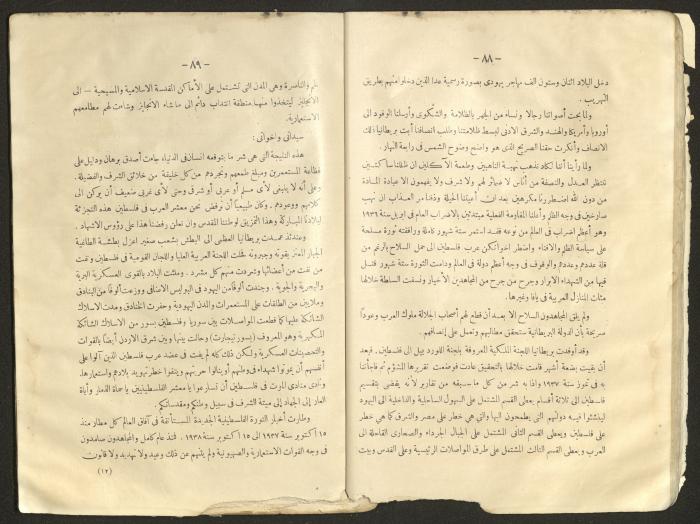 — ٨٨ —
دخل البلاد اثنان وستون الف مهاجر يهودى بصورة رسمية عدا الذين دخلوا منهم بطريق
التهريب .
ولما بحت أصواتنا رجالا ونساء من الجهر بالظلامة والشكوى وأرسلنا الوفود الى
أوروبا وأمريكا والهند والشرق الادنى لبسط ظلامتنا وطلب انصافنا أبت بريطانيا ذلك
الانصاف وأنكرت حقنا الصريح الذى هو واضح وضوح الشمس فى رابعة النهار .
ولما رأينا أننا نكاد نذهب نهبة الناهبين وطعمة الآكلين ان ظللنا ساكتين
ننتظر العدل والنصفة من أناس لا ضمائر لهم ولا شرف ولا يفهمون الا عبادة المادة
من دون الله اضطررنا مكرهين بعد ان أعيتنا الحيلة وذقنا مر العذاب ان نهب
صارخين فى وجه الظلم وأعلنا المقاومة الفعلية مبتدئين بالاضراب العام فى ابريل سنة ١٩٣٦
وهو أعظم اضراب فى العالم من نوعه فقد استمر ستة شهور كاملة ورافقته ثورة مسلحة
على سياسة الظلم والافناء واضطر اخوانكم عرب فلسطين الى حمل السلاح بالرغم من
قلة عددهم وعددهم والوقوف فى وجه أعظم دولة فى العالم ودامت الثورة ستة شهور قتل
فيها من الشهداء الابرار وجرح من جرح من المجاهدين الأخيار ونسفت السلطة خلالها
مئات المنازل العربية فى يافا وغيرها .
ولم يلق المجاهدون السلاح الا بعد ان قطع لهم أصحاب الجلالة ملوك العرب وعودًا
صريحة بأن الدولة البريطانية ستحقق مطالبهم وتعمل على إنصافهم .
وقد أوفدت بريطانيا اللجنة الملكية المعروفة بلجنة اللورد بيل الى فلسطين . فبعد
أن بقيت بضعة أشهر قامت خلالها بالتحقيق عادت فوضعت تقريرها المشؤم ثم فاجأتنا
به فى تموز سنة ١٩٣٧ واذا به شر من كل ما سبقه من تقارير لأنه يقضى بتقسيم
فلسطين الى ثلاثة أقسام يعطى القسم المشتمل على السهول الساحلية والداخلية الى اليهود
لينشئوا فيه دولتهم التى يطمحون اليها والتى هى خطر على مصر والشرق كما هى خطر
على فلسطين ويعطى القسم الثانى المشتمل على الجبال الجرداء والصحارى القاحلة الى
العرب ويعطى القسم الثالث المشتمل على طرق المواصلات الرئيسية وعلى القدس وبيت
— ٨٩ —
لحم والناصرة وهى المدن التى تشتمل على الأماكن المقدسة الاسلامية والمسيحية — الى
الانجليز ليتخذوا منها منطقة انتداب دائم الى ما شاء الانجليز وشاءت لهم مطامعهم
الاستعمارية .
سيداتى واخواتى :
هذه النتيجة التى هى شر ما يتوقعه انسان فى الدنياء جاءت أصدق برهان ودليل على
فظاعة المستعمرين ومبلغ طمعهم وتجردهم من كل خليقة من خلائق الشرف والفضيلة .
وعلى أنه لا ينبغى لأى مسلم أو عربى أو شرقى وحتى لأى غربى ضعيف أن يركن الى
كلامهم ووعودهم . وكان طبيعياً أن نرفض نحن معشر العرب فى فلسطين هذه التجزئة
لبلادنا المباركة وهذا التمزيق لوطننا المقدس وان نعلن رفضنا هذا على رؤوس الاشهاد .
وعندئذ عمدت بريطانيا العظمى الى البطش بشعب صغير اعزل بطشة الطاغية
الجبار المعتز بقوته وجبروته فحلت اللجنة العربية العليا واللجان القومية فى فلسطين ونفت
من نفت من أعضائها وشردت منهم كل مشرد . وملئت البلاد بالقوى العسكرية البرية
والبحرية والجوية . وجندت ألوفًا من اليهود فى البوليس الاضافى ووزعت ألوفًا من البنادق
وملايين من الطلقات على المستعمرات والمدن اليهودية وحفرت الخنادق ومدت الاسلاك
الشائكة عليها كما قطعت المواصلات بين سوريا وفلسطين بسور من الاسلاك الشائكة
المكهربة وهو المعروف (بسور تيجارت) وحالت بينها وبين شرق الاردن أيضاً بالقوات
والتحصينات العسكرية ولكن ذلك كله لم يفت فى عضد عرب فلسطين الذين آلوا على
أنفسهم أن يموتوا شهداء فى وطنهم أو ينالوا حريتهم ويتقوا خطر تهويد بلادهم واستعمارها .
ونادى منادى الموت فى فلسطين أن تسارعوا يا معشر الفلسطينيين يا حماة الذمار وأباة
العار الى الجهاد الى ميتة الشرف فى سبيل وطنكم ومقدساتكم .
وطارت أخبار الثورة الفلسطينية الجديدة المستأنفة فى آفاق العالم كل مطار منذ
١٥ أكتوبر سنة ١٩٣٧ الى ١٥ أكتوبر سنة ١٩٣٨ . فمنذ عام كامل والمجاهدون صامدون
فى وجه القوات الاستعمارية والصهيونية ولم يثنهم عن ذلك وعيد ولا تهديد ولا قانون
(١٢)